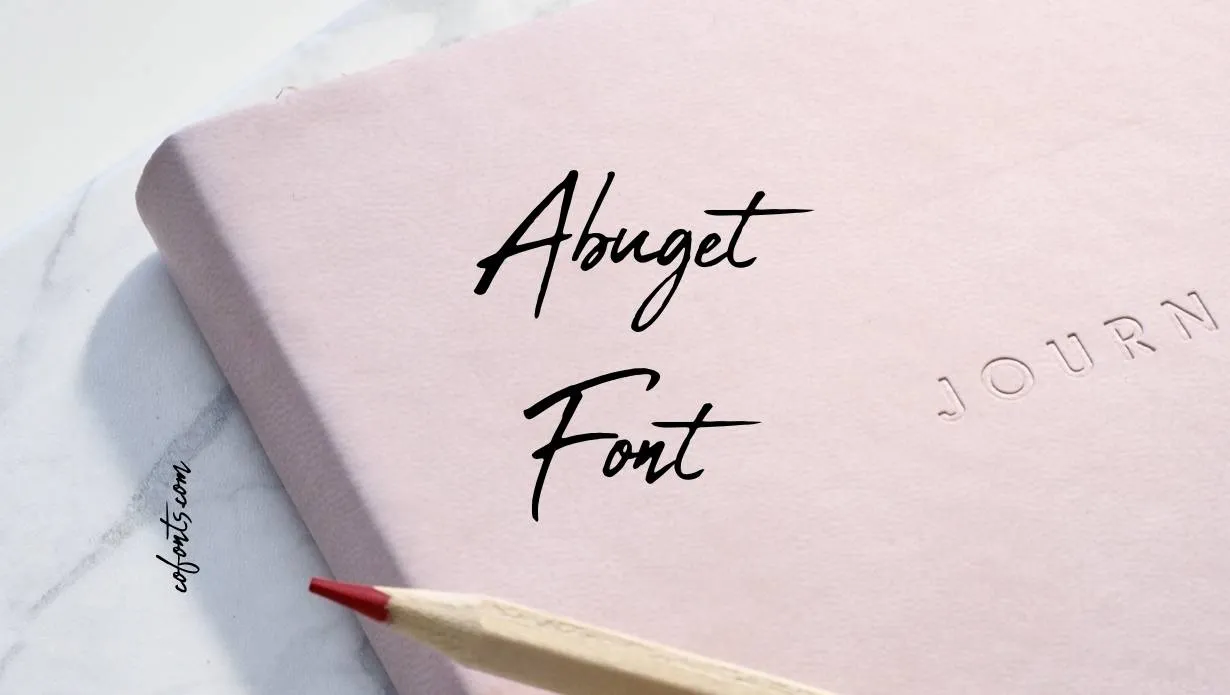 Abuget
Font
JOURN
cofonts.com